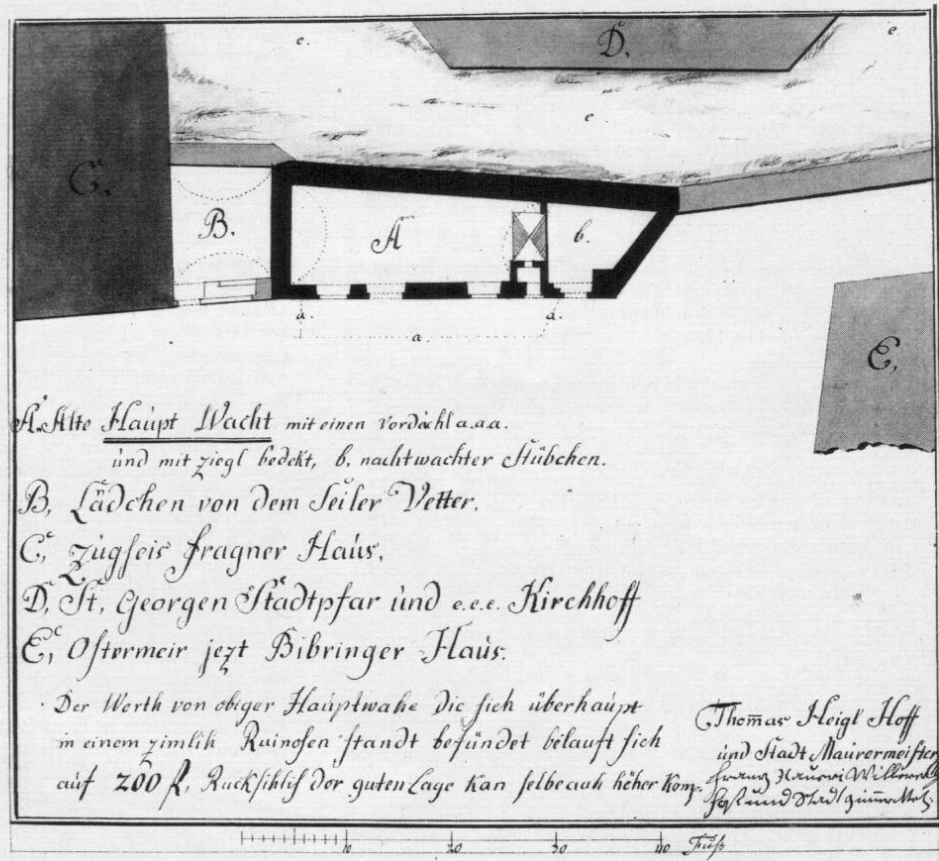 e.
D.
e.
C.
e.
B.
A
b.
a.
a.
a.
E,
A. Alte Haupt Wacht mit einen Vordächl a.a.a.
und mit ziegl bedekt, b. nachtwachter Stübchen.
B, Lädchen von dem Seiler Vetter.
C, Zugseis fragner Haus,
D, St, Georgen Stadtpfar und e.e.e. Kirchhoff
E, Ostermeir jezt Bibringer Haus.
Der Werth von obiger Hauptwahe die sich überhaupt
in einem zimlih Ruinosen standt befündet belauft sich
auf 200 f, Ruksihlis der guten Lage kan selbe auh höher Kom.
Thomas Heigl Hoff
und Stadt Maurermeister
Franz
und Stadt
10 20 30 40 Schuh